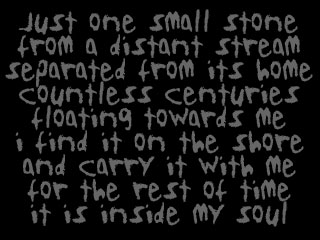 just one small stone
from a distant stream
separated from its home
countless centuries
floating towards me
i find it on the shore
and carry it with me
for the rest of time
it is inside my soul